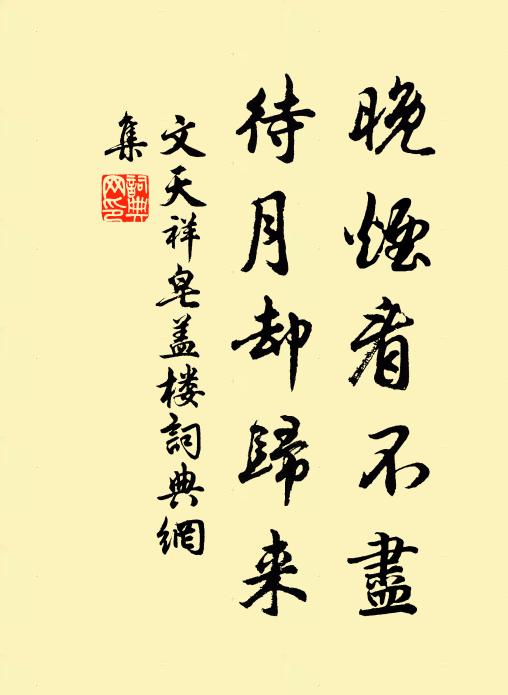 晚煙看不盡
待月却歸来
文天祥皂蓋楼詞典網
集
詞典
网印